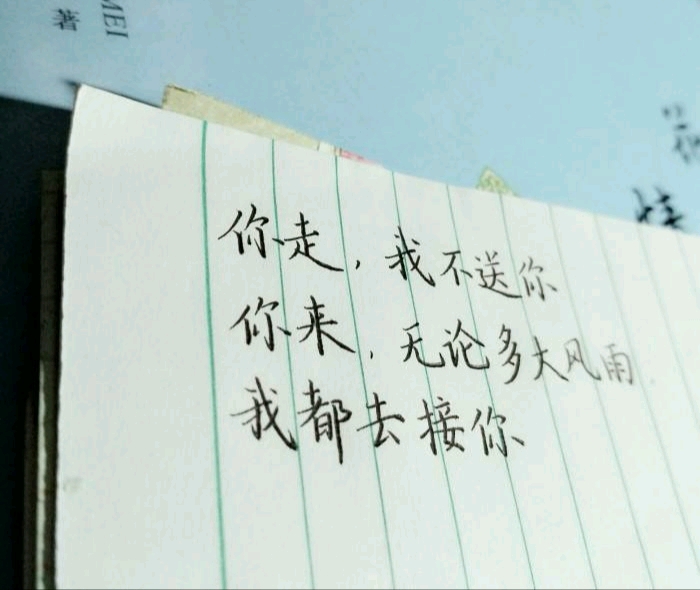 MEI
著
你走，我不送你
你来，无论多大风雨
我都去接你